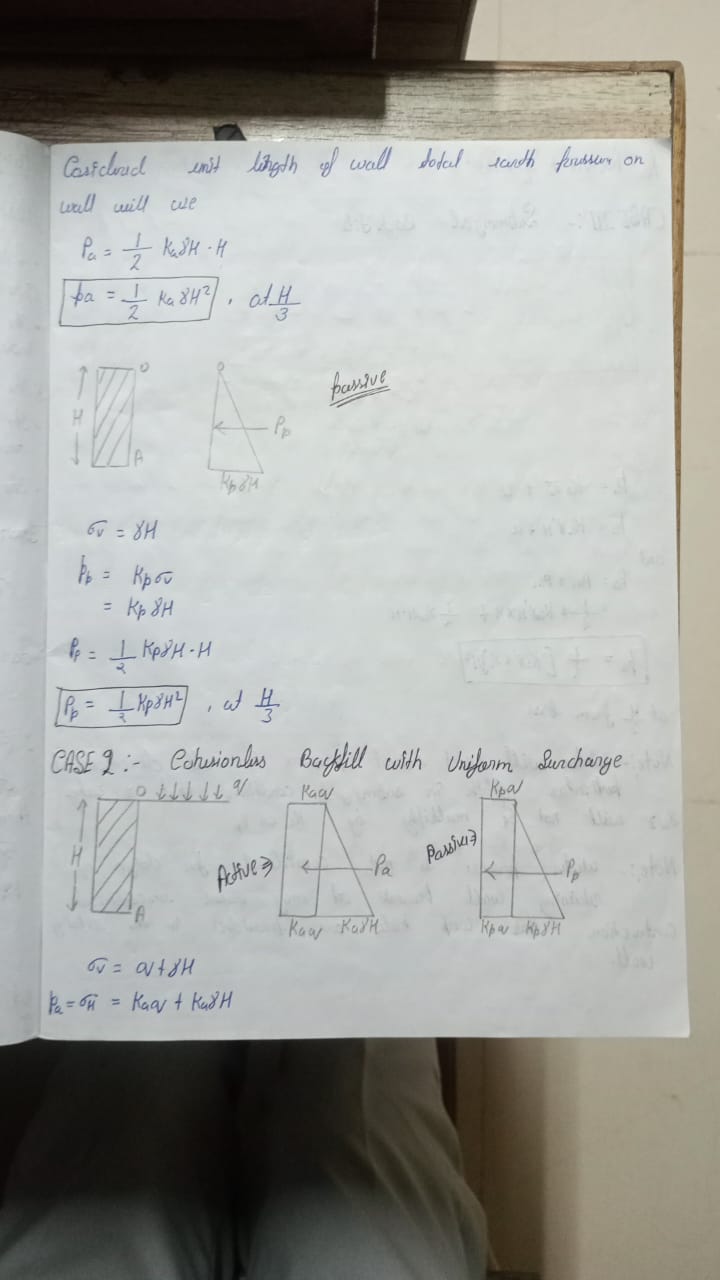 unit length of wall total earth on
wall will
Pa = 1/2 KaγH · H
pa = 1/2 KaγH² , at H/3
Passive
O O
H Pp
A
KpγH
σv = γH
Pp = Kpσv
= KpγH
Pp = 1/2 KpγH · H
Pp = 1/2 KpγH² , at H/3
CASE 2 :- Cohusionless Backfill with Uniform Surcharge
O ↓↓↓↓↓ q Kaq Kpq
H Active⇒ Pa Passive⇒ Pp
A Kaq KaγH Kpq KpγH
σv = q+γH
Pa = σH = Kaq + KaγH